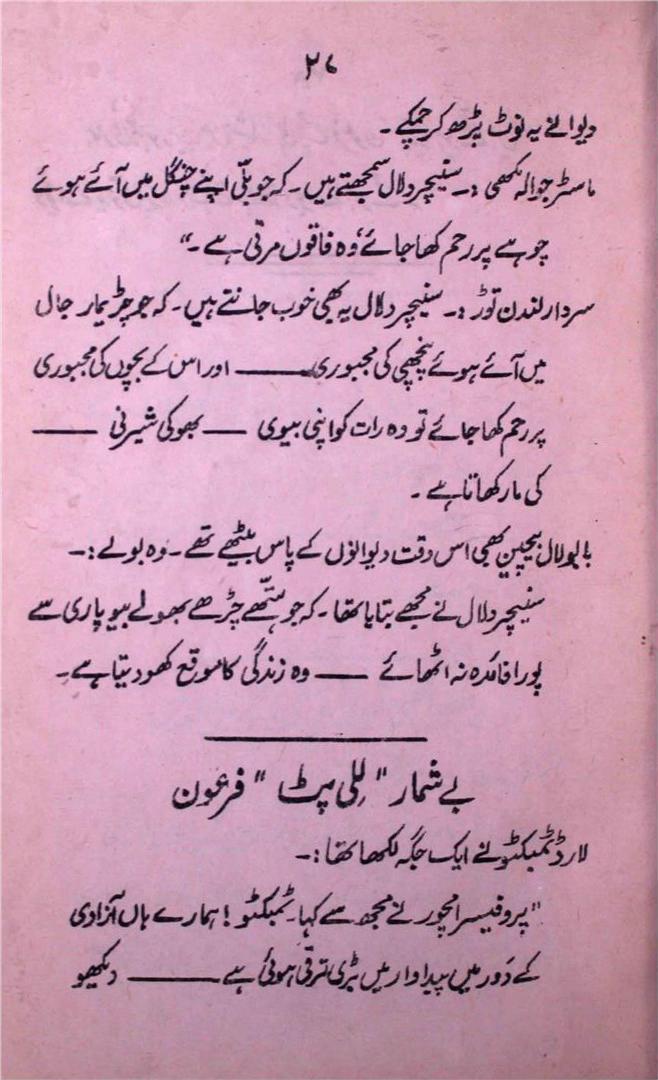 ۳۶
دیوانے یہ نوٹ پڑھ کر چمکے۔
ماسٹر جوالہ مکھی :۔ سنیچر دلال سمجھتے ہیں۔ کہ جو بلّی اپنے چنگل میں آئے ہوئے
چوہے پر رحم کھا جائے، وہ فاقوں مرتی ہے۔"
سردار لندن توڑ :۔ سنیچر دلال یہ بھی خوب جانتے ہیں۔ کہ جو چڑیمار جال
میں آئے ہوئے پنچھی کی مجبوری —— اور اس کے بچوں کی مجبوری
پر رحم کھا جائے تو وہ رات کو اپنی بیوی —— بھوکی شیرنی ——
کی مار کھاتا ہے۔
بابو لال بیچین بھی اس وقت دیوانوں کے پاس بیٹھے تھے۔ وہ بولے :۔
سنیچر دلال نے مجھے بتایا تھا۔ کہ جو ہتھے چڑھے بھولے بیوپاری سے
پورا فائدہ نہ اٹھائے —— وہ زندگی کا موقع کھو دیتا ہے۔
بے شمار "للی پٹ" فرعون
لارڈ ٹمبکٹو نے ایک جگہ لکھا تھا :۔
"پروفیسر امچور نے مجھ سے کہا۔ ٹمبکٹو! ہمارے ہاں آزادی
کے دَور میں پیداوار میں بڑی ترقی ہوئی ہے —— دیکھو